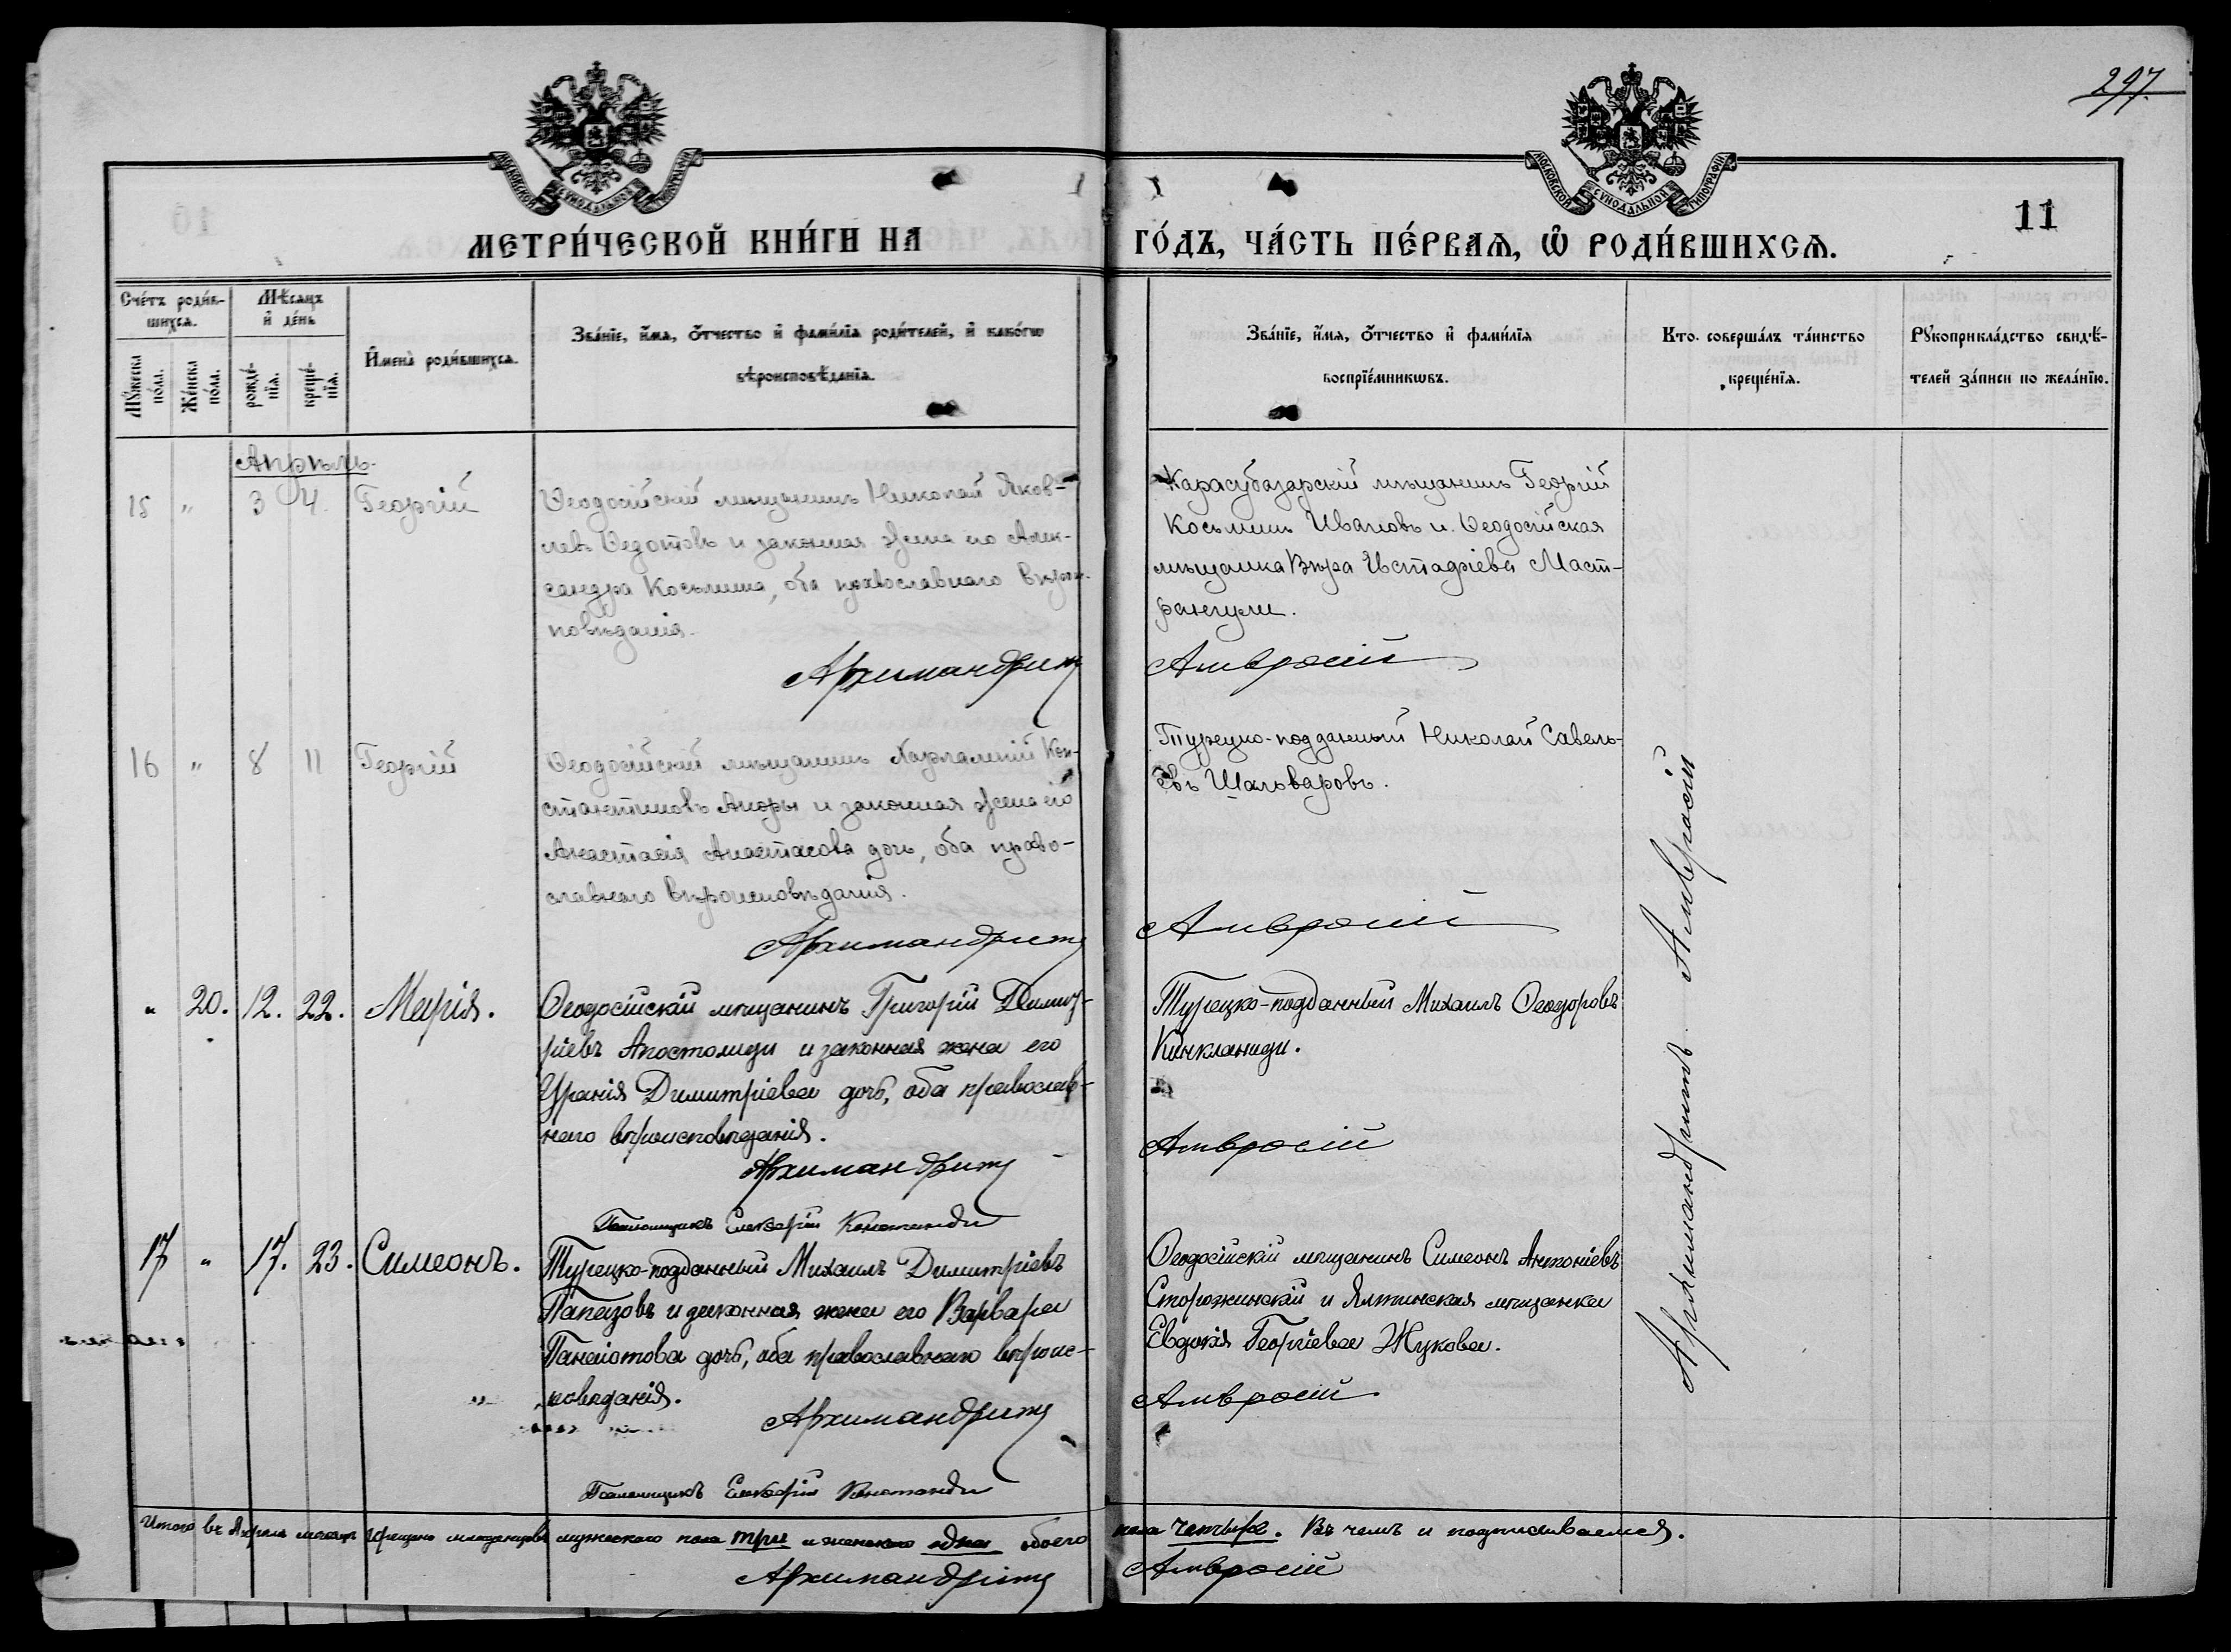 297
МОСКОВСКОЙ СУНОДАЛЬНОЙ ТИПОГРАФІИ
МОСКОВСКОЙ СУНОДАЛЬНОЙ ТИПОГРАФІИ
11
МЕТРИ́ЧЕСКОЙ КНИ́ГИ НА ГО́ДЪ, ЧА́СТЬ ПЕ́РВАѦ, Ѡ҆ РОДИ́ВШИХСѦ.
Сче́тъ роди́в-
шихсѧ.
Мѣсѧцъ
и҆ де́нь
Мꙋ́жеска
по́ла.
Же́нска
по́ла.
рожде́-
нїѧ.
креще́-
нїѧ.
И҆мена̀ роди́вшихсѧ.
Зва́нїе, и҆́мѧ, ѻ҆́тчество и҆ фами́лїѧ роди́телей, и҆ како́гѡ
вѣроисповѣ́данїѧ.
Зва́нїе, и҆́мѧ, ѻ҆́тчество и҆ фами́лїѧ
воспрїе́мникѡвъ.
Кто̀ соверша́лъ та́инство
креще́нїѧ.
Рꙋкоприкла́дство свидѣ́-
телей за́писи по жела́нїю.
Апрѣль.
15 " 3 4. Георгій
Ѳеодосійскій мѣщанинъ Николай Яков-
левъ Ѳедотовъ и законная жена его Алек-
сандра Косьмина, оба православнаго вѣроис-
повѣданія.
Архимандритъ
Карасубазарскій мѣщанинъ Георгій
Косьминъ Ивановъ и Ѳеодосійская
мѣщанка Вѣра Истафіева Маст-
рангули.
Амвросій
16 " 8 11 Георгій
Ѳеодосійскій мѣщанинъ Харлампій Кон-
стантиновъ Ангоры и законная жена его
Анастасія Анастасова дочь, оба право-
славнаго вѣроисповѣданія.
Архимандритъ
Турецко-подданный Николай Савель-
евъ Шальваровъ.
Амвросій
" 20. 12. 22. Марія.
Ѳеодосійскій мѣщанинъ Григорій Димит-
ріевъ Апостолиди и законная жена его
Уранія Димитріева дочь, оба православ-
наго вѣроисповѣданія.
Архимандритъ
Псаломщикъ Елевѳерій Конотанди
Турецко-подданный Михаилъ Ѳеодоровъ
Кинкланиди.
Амвросій
17 " 17. 23. Симеонъ.
Турецко-подданный Михаилъ Димитріевъ
Папазовъ и законная жена его Варвара
Панаіотова дочь, оба православнаго вѣроис-
повѣданія.
Архимандритъ
Псаломщикъ Елевѳерій Конотанди
Ѳеодосійскій мѣщанинъ Симеонъ Антоніевъ
Сторожинскій и Ялтинская мѣщанка
Евдокія Георгіева Жукова.
Амвросій
Архимандритъ Амвросій
Итого въ Апрѣлѣ мѣсяцѣ крещено младенцевъ мужескаго пола три и женскаго одна обоего пола четыре. Въ чемъ и подписываемся.
Архимандритъ Амвросій